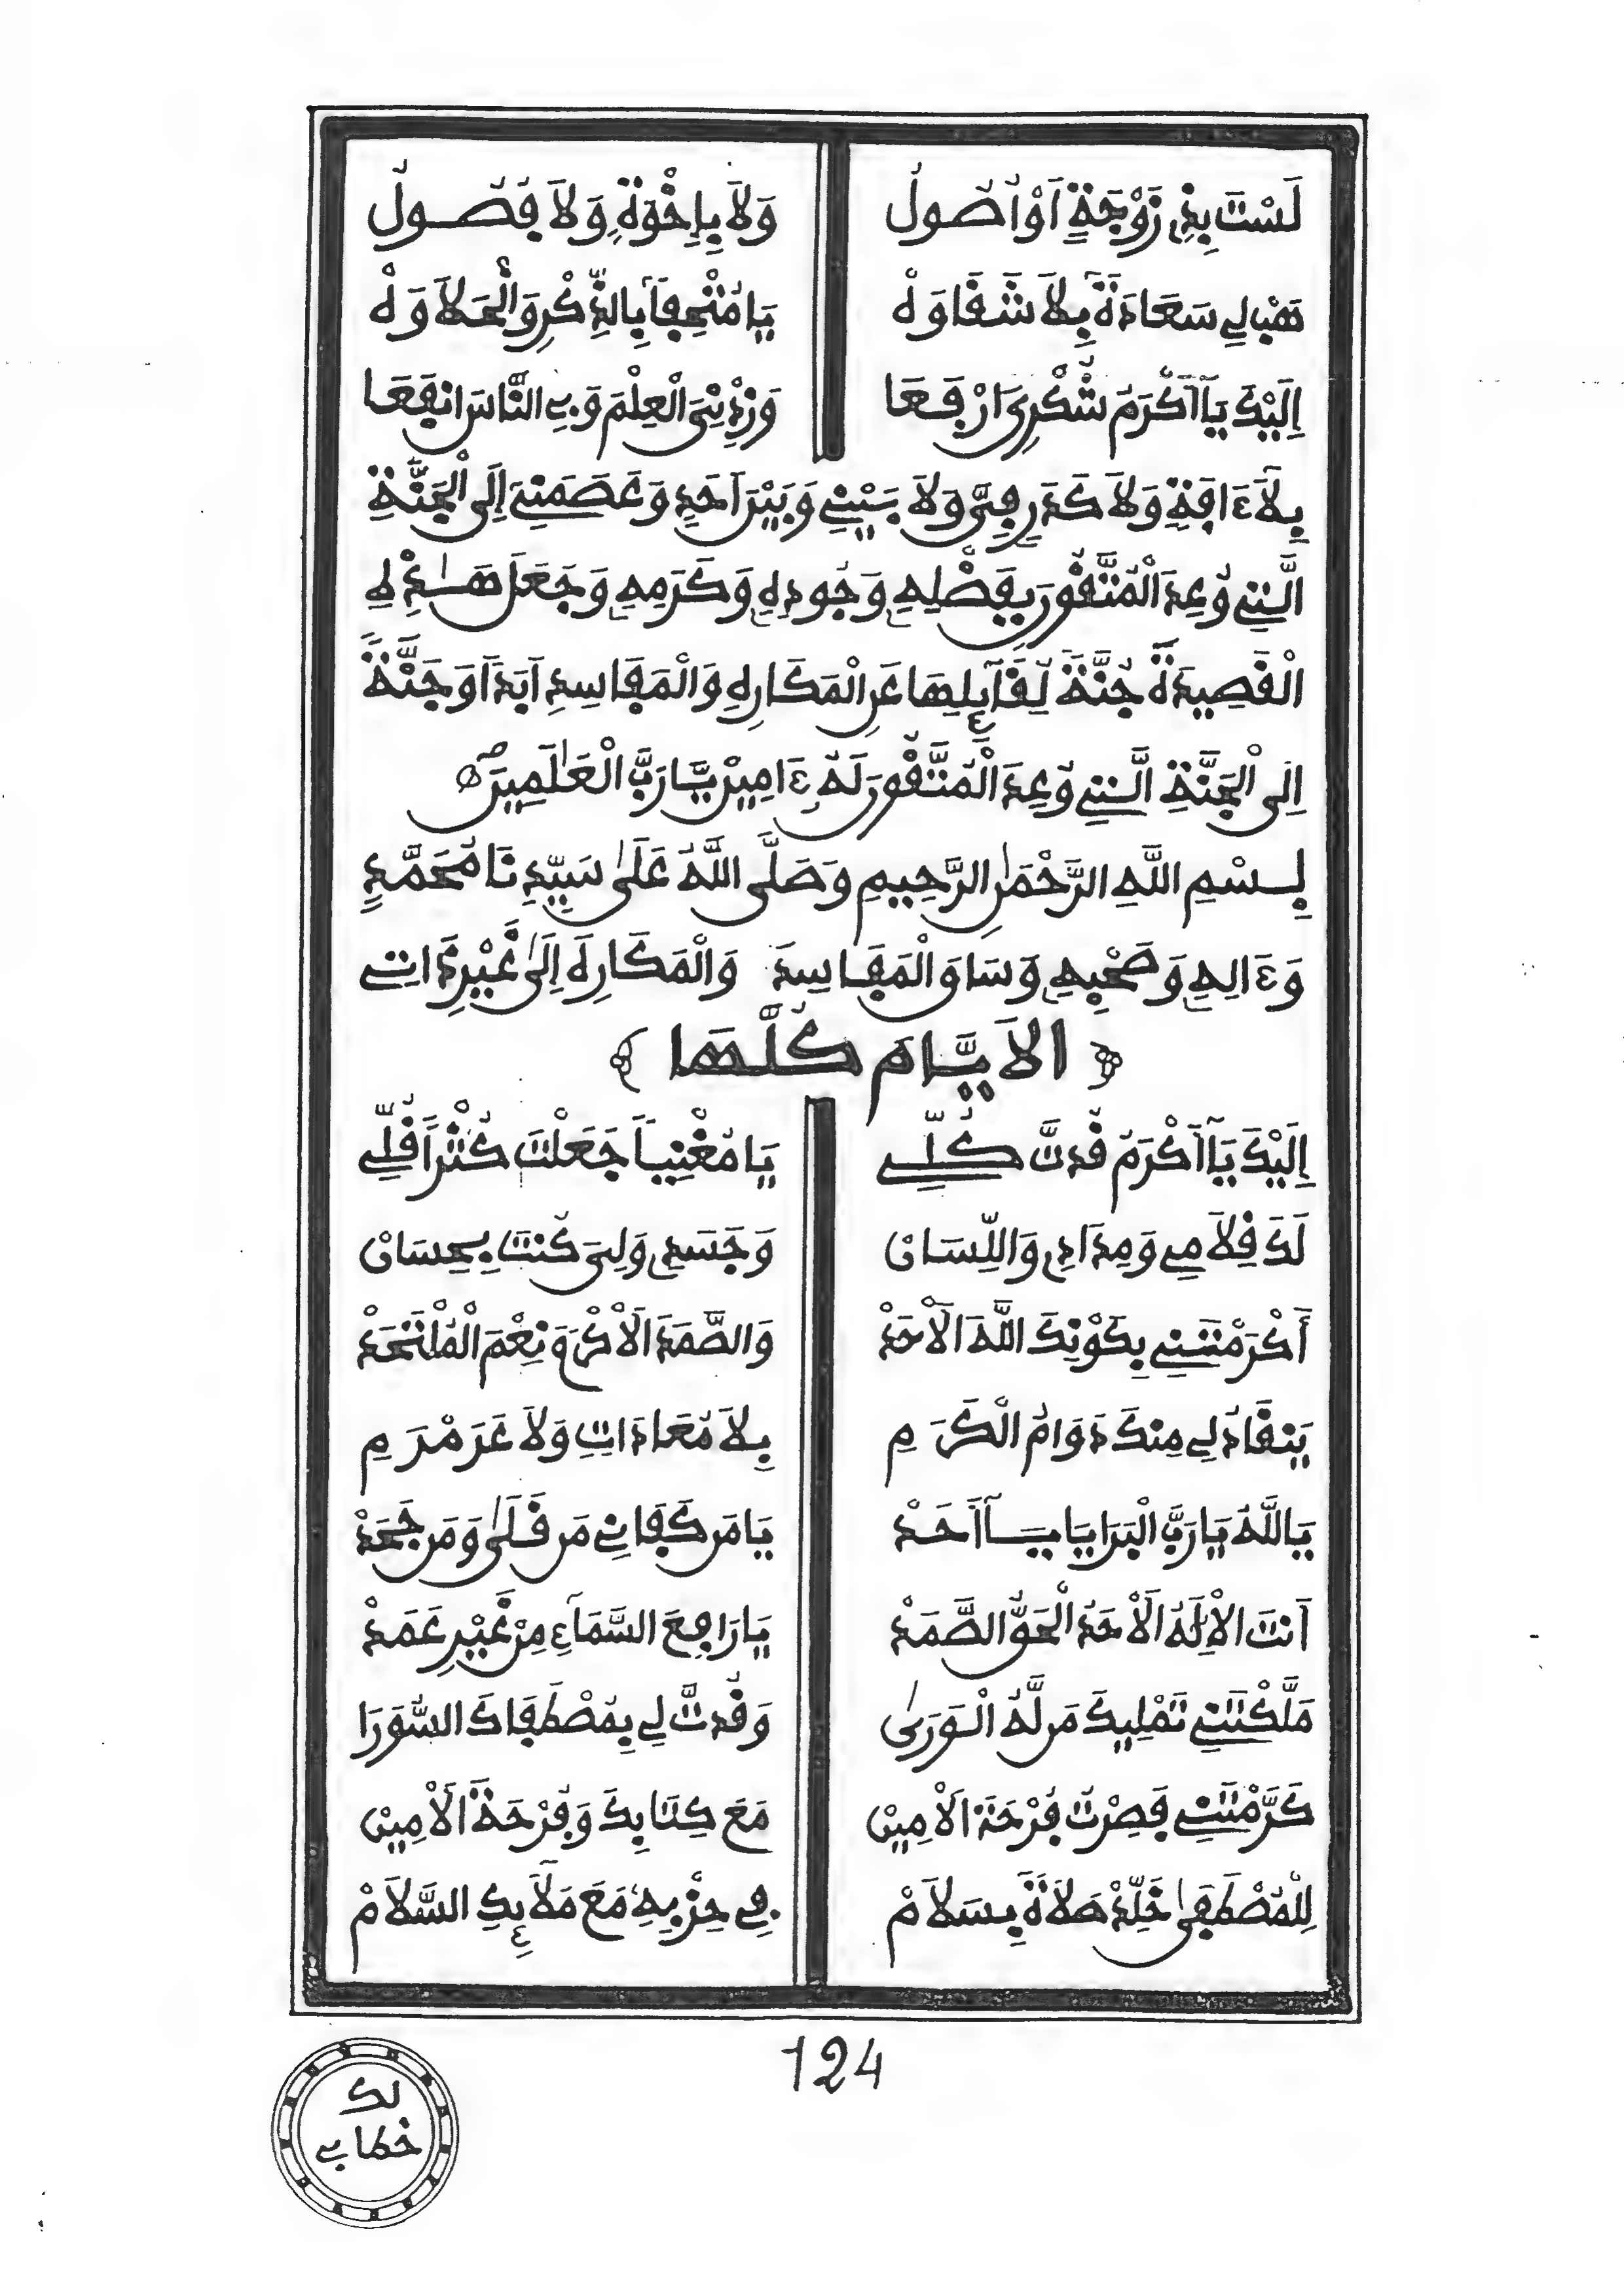 لَسْتَ بِذِي زَوْجَةٍ اَوْ اُصُولْ وَلَا بِإِخْوَةٍ وَلَا فُصُولْ
هَبْ لِي سَعَادَةً بِلَا شَقَاوَهْ يَا مُتْحِفاً بِالذِّكْرِ وَالْحَلَاوَهْ
إِلَيْكَ يَآ أَكْرَمُ شُكْرِيَ ارْفَعَا وَزِدْنِيَ الْعِلْمَ وَبِي النَّاسَ انْفَعَا
بِلَا ءَافَةٍ وَلَا كَدَرٍ فِيَّ وَلَا بَيْنِي وَبَيْنَ أَحَدٍ وَعَصَمَنِي إِلَى الْجَنَّةِ
الَّتِي وُعِدَ الْمُتَّقُونَ بِفَضْلِهِ وَجُودِهِ وَكَرَمِهِ وَجَعَلَ هَٰذِهِ
الْقَصِيدَةَ جُنَّةً لِقَآئِلِهَا عَنِ الْمَكَارِهِ وَالْمَفَاسِدِ أَبَداً وَجَنَّةً
إِلَى الْجَنَّةِ الَّتِي وُعِدَ الْمُتَّقُونَ لَهُ ءَامِينْ يَا رَبَّ الْعَٰلَمِينَ
بِسْمِ اللَّهِ الرَّحْمَٰنِ الرَّحِيمِ وَصَلَّى اللَّهُ عَلَىٰ سَيِّدِنَا مُحَمَّدٍ
وَءَالِهِ وَصَحْبِهِ وَسَاقَ الْمَفَاسِدَ وَالْمَكَارِهَ إِلَىٰ غَيْرِ ذَاتِي
﴿ الْأَيَّامَ كُلَّهَا ﴾
إِلَيْكَ يَآ أَكْرَمُ قُدتَّ كُلِّي يَا مُغْنِياً جَعَلْتَ كُثْراً قُلِّي
لَكَ قِلَامِي وَمِدَادِي وَاللِّسَانْ وَجَسَدِي وَلِيَ كُنْتَ بِحِسَانْ
أَكْرَمْتَنِي بِكَوْنِكَ اللَّهَ الْأَحَدْ وَالصَّمَدَ الْأَكْرَمَ وَنِعْمَ الْمُلْتَحَدْ
يَنْقَادُ لِي مِنْكَ دَوَامُ الْكَرَمِ بِلَا مُعَادَاتٍ وَلَا عَرَمْرَمِ
يَا اللَّهُ يَا رَبَّ الْبَرَايَا يَآ أَحَدْ يَا مَن كَفَانِي مَن قَلَىٰ وَمَن جَحَدْ
أَنتَ الْإِلَٰهُ الْأَحَدُ الْحَقُّ الصَّمَدْ يَا رَافِعَ السَّمَآءِ مِنْ غَيْرِ عَمَدْ
مَلَّكْتَنِي تَمْلِيكَ مَن لَّهُ الْوَرَىٰ وَقُدتَّ لِي بِمُصْطَفَاكَ السُّوَرَا
كَرَّمْتَنِي فَصِرْتُ فُرْحَةَ الْأَمِينْ مَعَ كِتَابِكَ وَفُرْحَةَ الْأَمِينْ
لِلْمُصْطَفَىٰ خَلِّدْ صَلَاةً بِسَلَامْ فِي حِزْبِهِ مَعَ مَلَآئِكِ السَّلَامْ
124
لك
خطابي